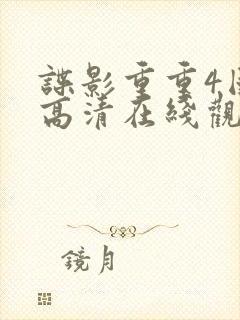 諜影重重4
高清在綫觀
鏡月